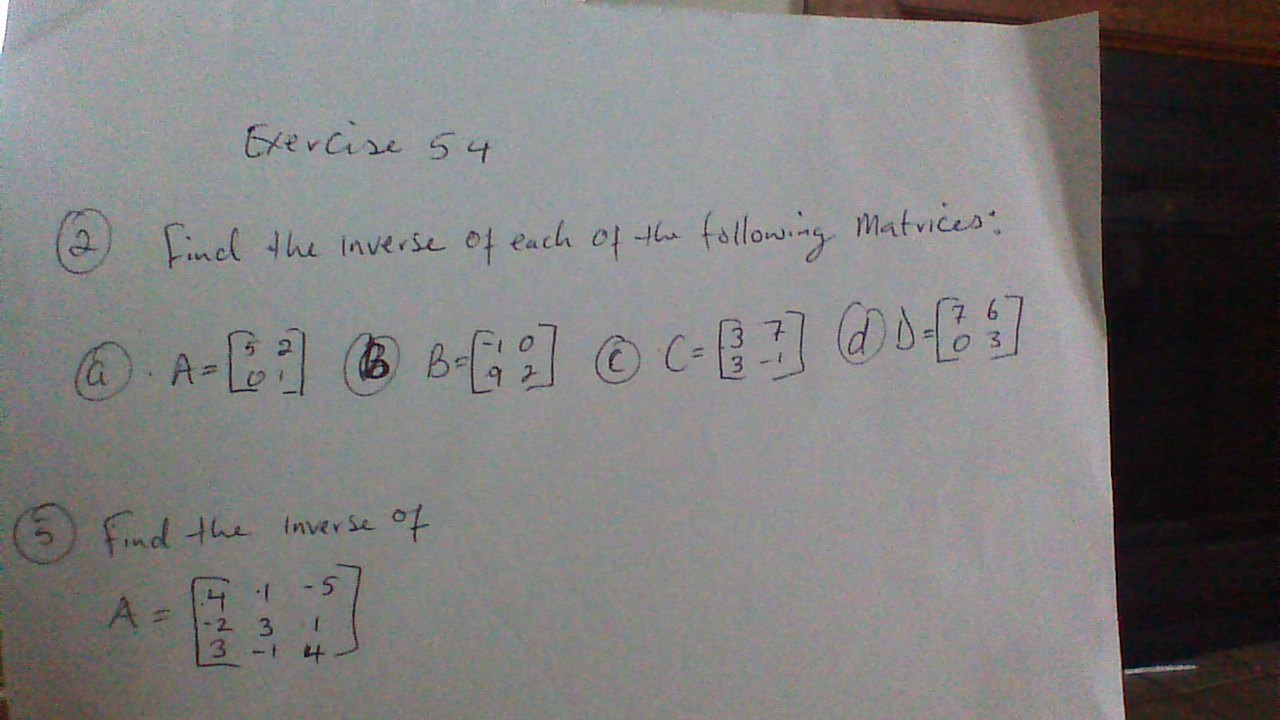 Exercise 54
2 Find the inverse of each of the following Matrices:
a . A = [5 2 b B = [-1 0 c . C = [3 7 d D = [7 6
0 1] 9 2] 3 -1] 0 3]
5 Find the inverse of
A = [4 1 -5
-2 3 1
3 -1 4]